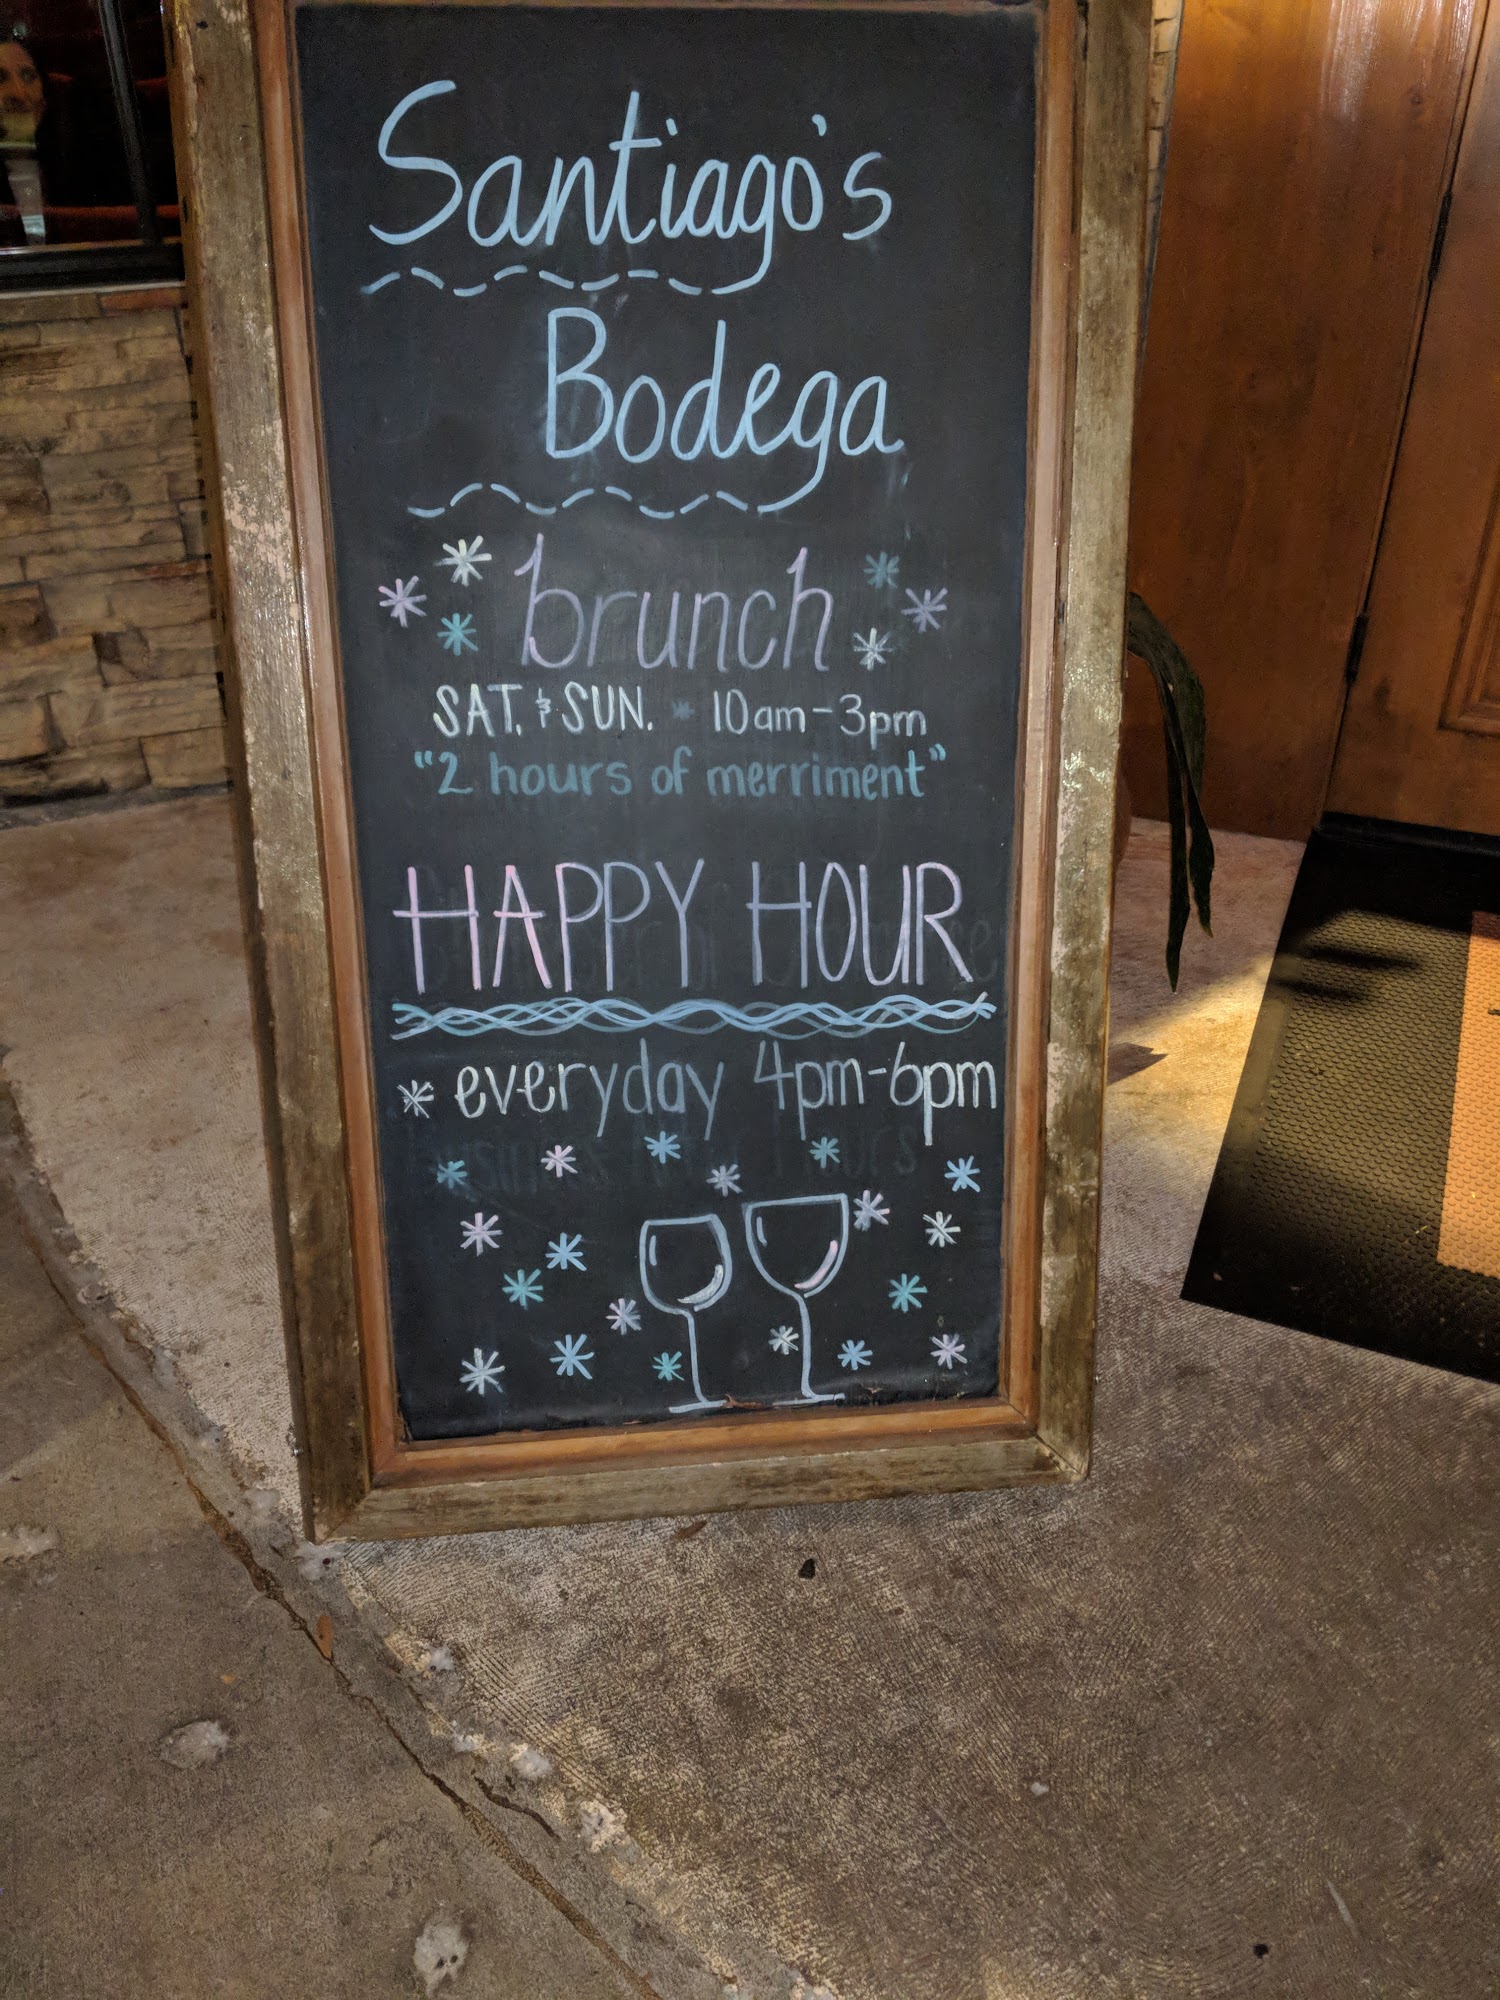 Santiago's
Bodega
brunch
SAT. & SUN. * 10am-3pm
"2 hours of merriment"
HAPPY HOUR
* everyday 4pm-6pm